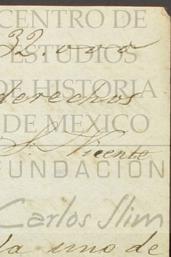 CENTRO DE
32.000
ESTUDIOS
DE HISTORIA
derechos
DE MEXICO
S. Vicente
FUNDACIÓN
Carlos Slim
la uno de